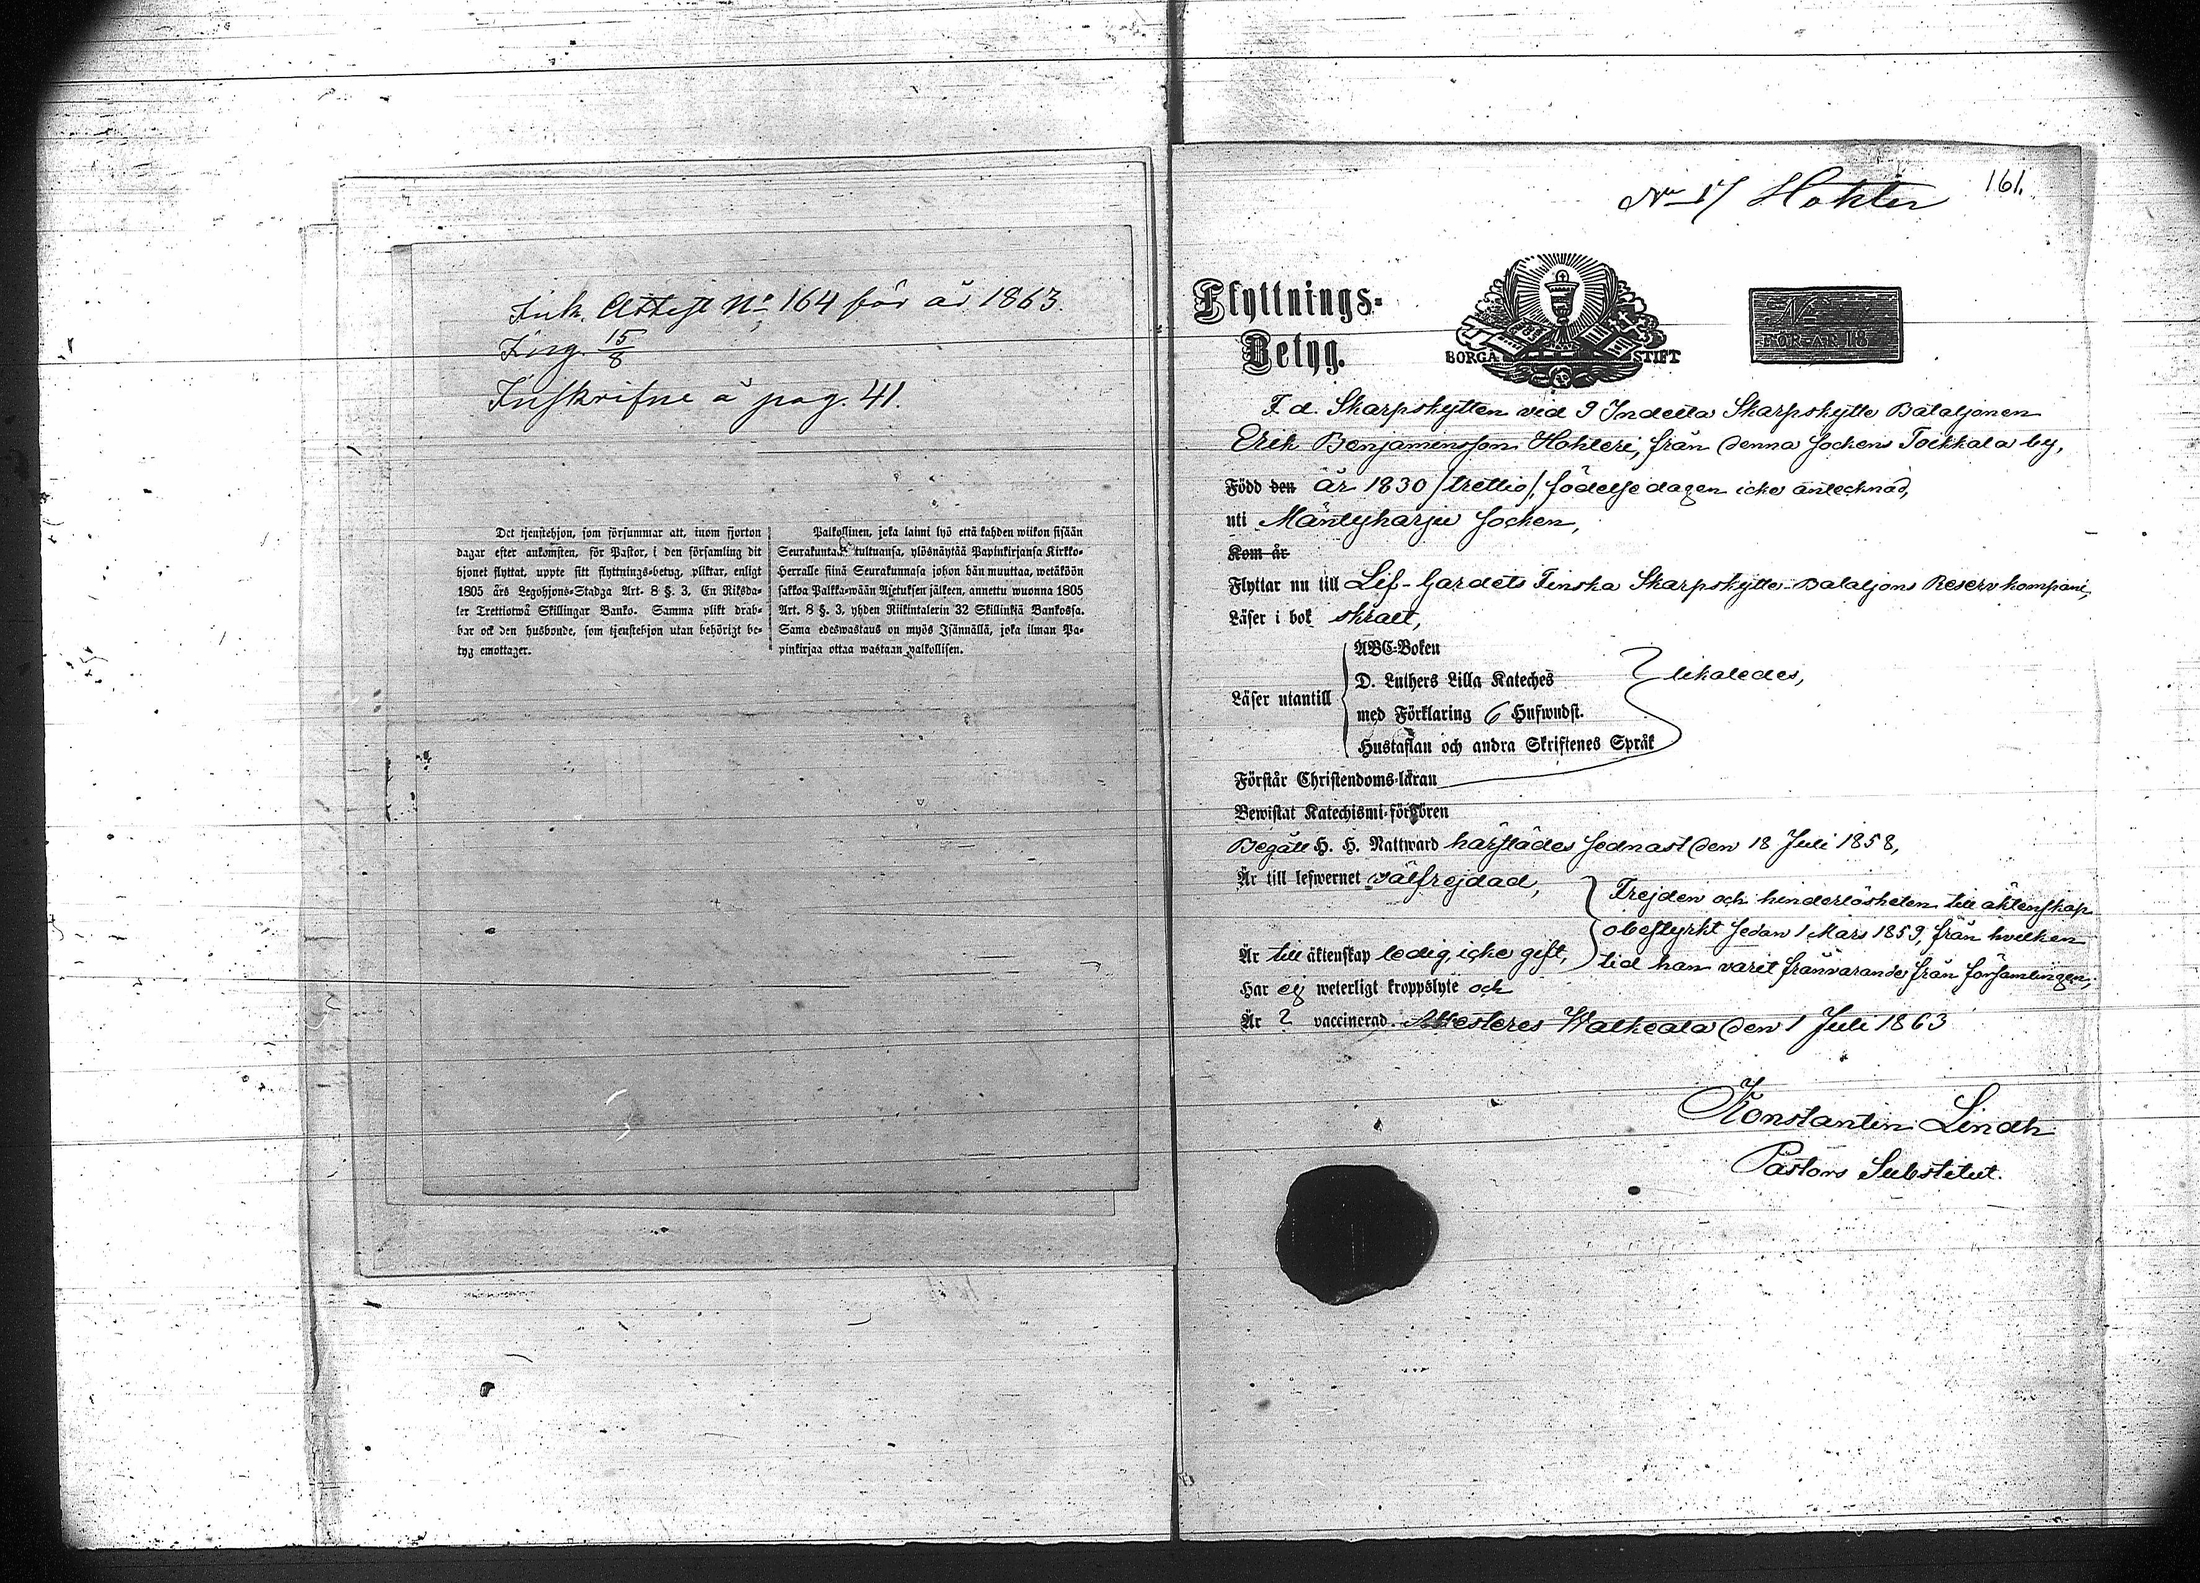 Ink. Attest No 164 för år 1863.
Ing. 15/8
Inskrifne å pag. 41.
Det tjenstehjon, som försummar att, inom fjorton
dagar efter ankomsten, för Pastor, i den församling dit
hjonet flyttat, uppte sitt flyttnings-betyg, pliktar, enligt
1805 års Legohjons-Stadga Art. 8 §. 3, En Riksda-
ler Trettiotwå Skillingar Banko. Samma plikt drab-
bar ock den husbonde, som tjenstehjon utan behörigt be-
tyg emottager.
Palkollinen, joka laimi lyö että kahden wiikon sisään
Seurakuntaan tultuansa, ylösnäytää Papinkirjansa Kirkko-
Herralle siinä Seurakunnasa johon hän muuttaa, wetäköön
sakkoa Palkka-wään Ajetuksen jälkeen, annettu wuonna 1805
Art. 8 §. 3, yhden Riikintalerin 32 Skillinkiä Bankossa.
Sama edeswastaus on myös Isännällä, joka ilman Pa-
pinkirjaa ottaa wastaan palkollisen.
161.
No 17 Hohter
Flyttnings-
Betyg.
BORGÅ STIFT
No
FÖR ÅR 18
F. d. Skarpskytten vid 9 Indelta Skarpskytte Bataljonen
Erik Benjaminsson Hohteri, från denna Sockens Toikkala by,
Född den år 1830 /trettio/, födelsedagen icke antecknad,
uti Mäntyharju Socken,
Kom år
Flyttar nu till Lif-Gardets Finska Skarpskytte-Bataljons Reservkompani,
Läser i bok skralt,
ABC-Boken
D. Luthers Lilla Kateches
Läser utantill likaledes,
med Förklaring 6 Hufwudst.
Hustaflan och andra Skriftenes Språk
Förstår Christendoms-läran
Bewistat Katechismi-förhören
Begått H. H. Nattward härstädes sednast den 18 Juli 1858,
Är till lefwernet välfrejdad,
Frejden och hinderlösheten till äktenskap
obestyrkt sedan 1 Mars 1859, från hvilken
tid han varit frånvarande från församlingen;
Är till äktenskap ledig, icke gift,
Har ej weterligt kroppslyte och
Är ? vaccinerad. Attesteres Walkeala den 1 Juli 1863
Konstantin Lindh
Pastors Substitut.